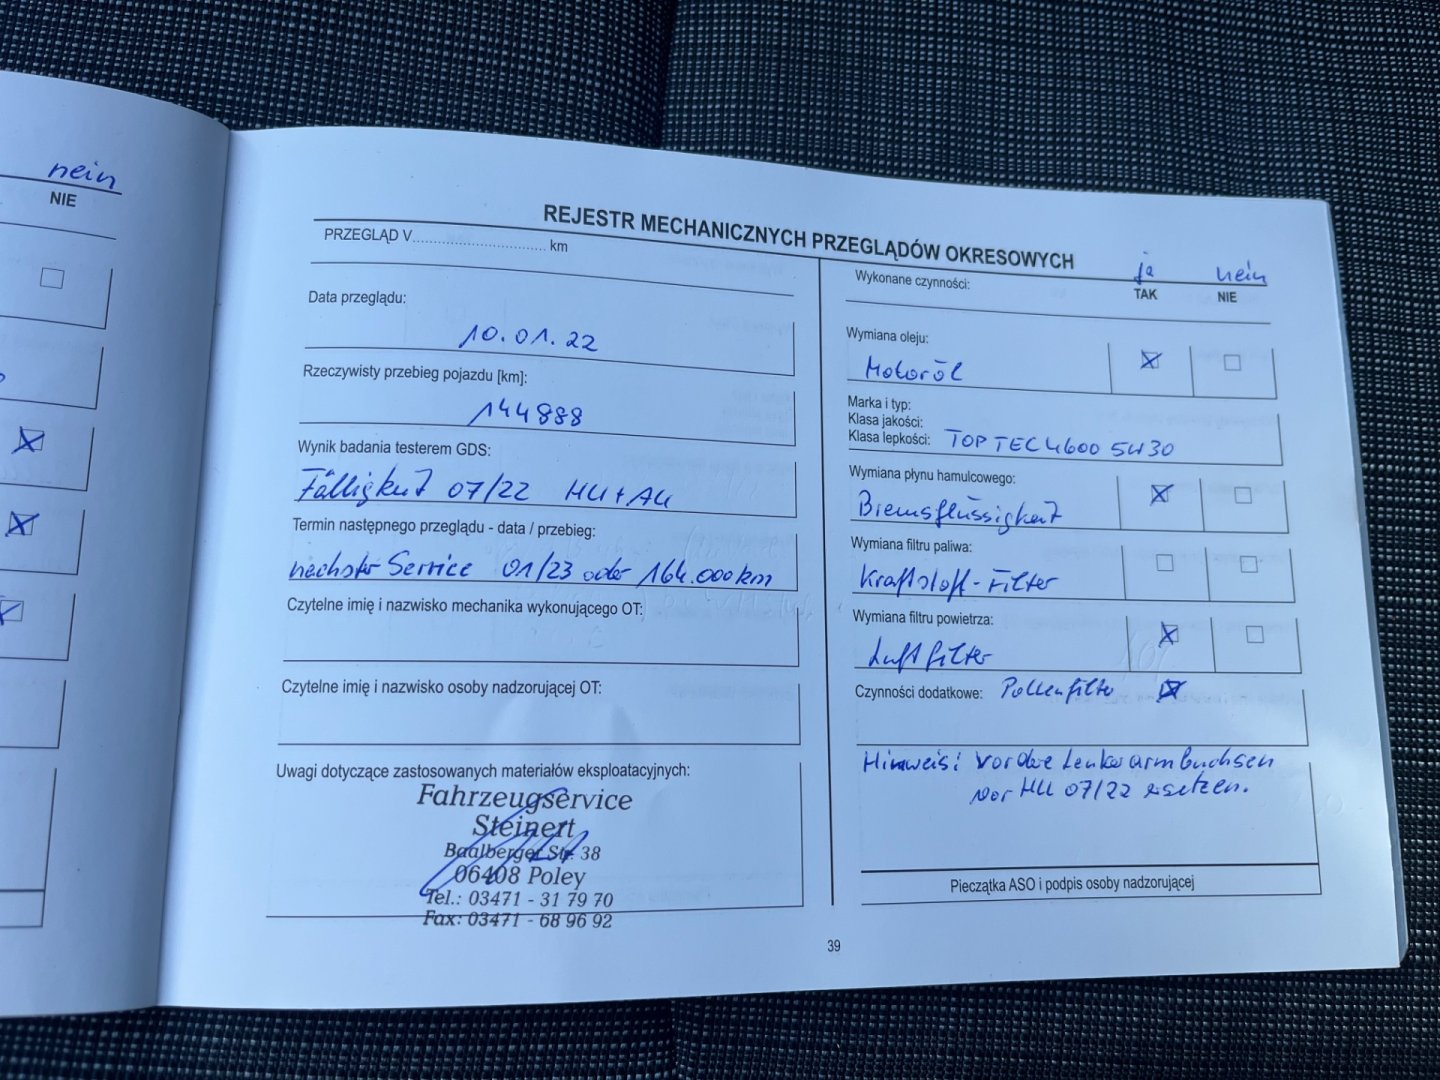 nein
NIE
REJESTR MECHANICZNYCH PRZEGLĄDÓW OKRESOWYCH
PRZEGLĄD V............................... km
Data przeglądu:
10.01.22
Rzeczywisty przebieg pojazdu [km]:
144888
Wynik badania testerem GDS:
Fälligkeit 07/22 HU + AU
Termin następnego przeglądu - data / przebieg:
nächster Service 01/23 oder 164.000km
Czytelne imię i nazwisko mechanika wykonującego OT:
Czytelne imię i nazwisko osoby nadzorującej OT:
Uwagi dotyczące zastosowanych materiałów eksploatacyjnych:
Fahrzeugservice
Steinert
Baalberger Str. 38
06408 Poley
Tel.: 03471 - 31 79 70
Fax: 03471 - 68 96 92
ja nein
Wykonane czynności: TAK NIE
Wymiana oleju:
Motoröl
Marka i typ:
Klasa jakości:
Klasa lepkości: TOP TEC 4600 5W30
Wymiana płynu hamulcowego:
Bremsflüssigkeit
Wymiana filtru paliwa:
Kraftstoff-Filter
Wymiana filtru powietrza:
Luftfilter
Czynności dodatkowe: Pollenfilter
Hinweis: vordere Lenkerarmbuchsen
vor HU 07/22 ersetzen.
Pieczątka ASO i podpis osoby nadzorującej
39